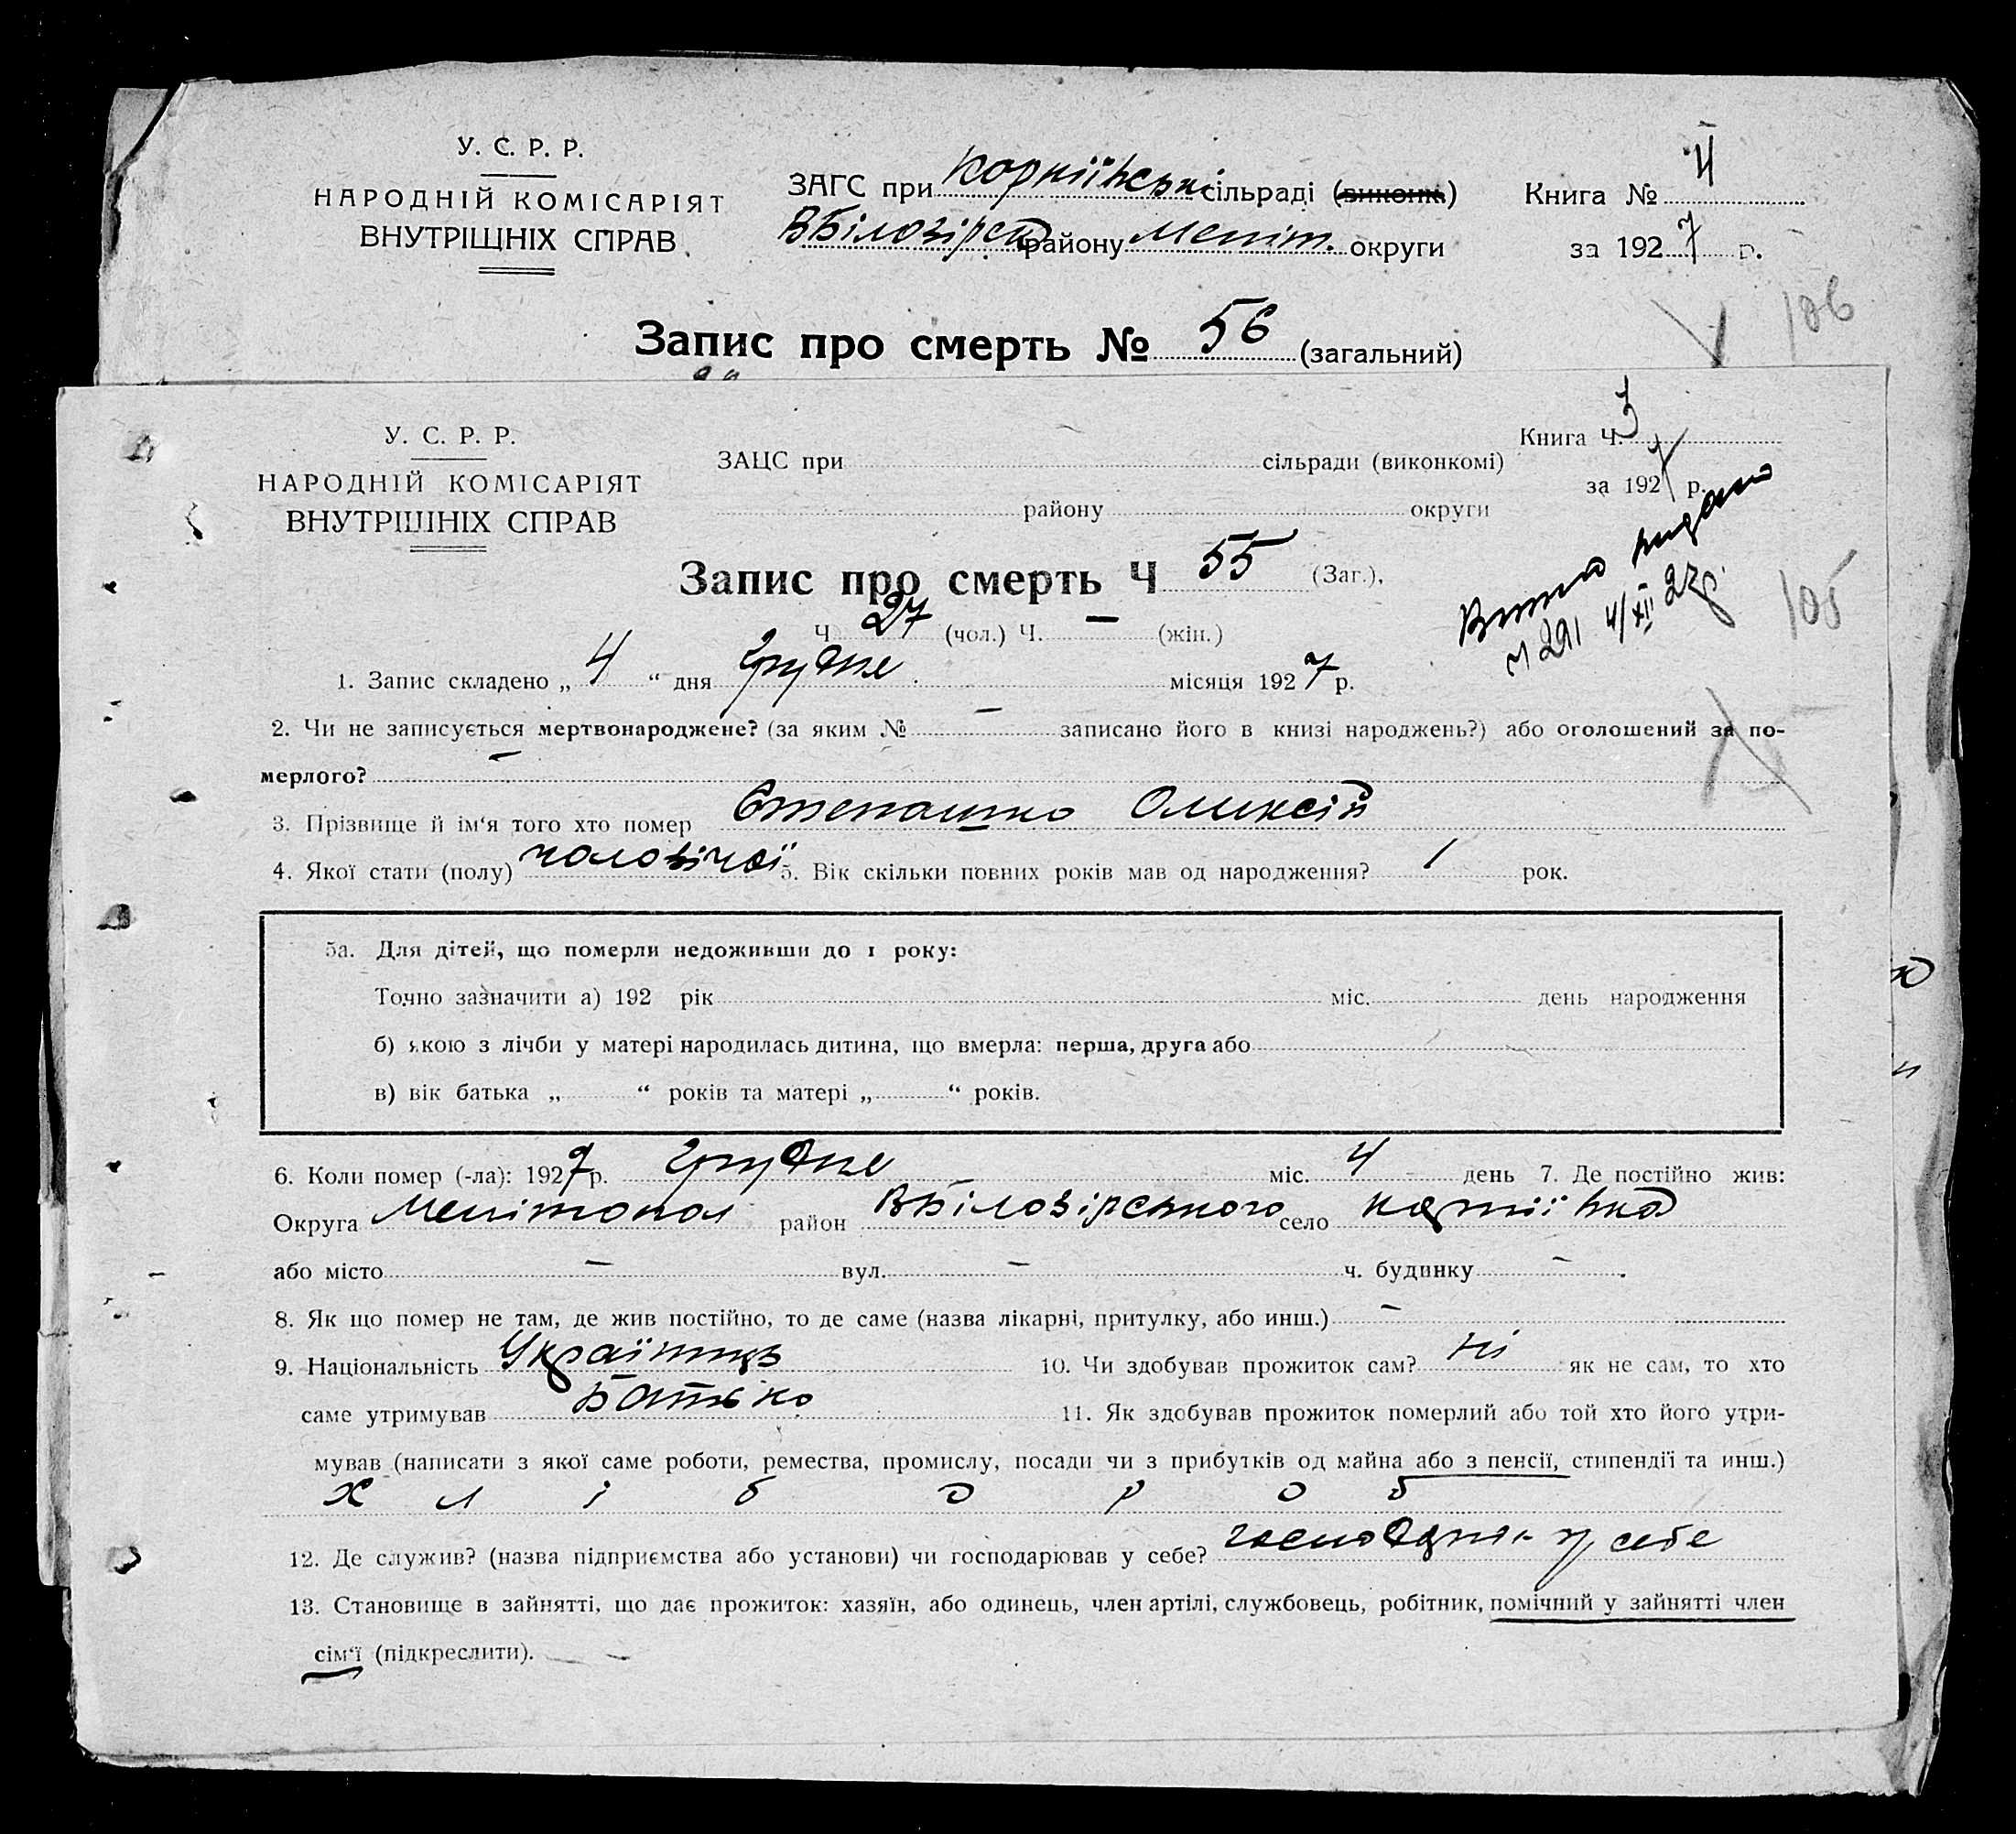 У. С. Р. Р.
НАРОДНІЙ КОМІСАРІЯТ
ВНУТРІШНІХ СПРАВ
ЗАГС при Корніївські сільраді (виконк.)
ВБілозірск району Меліт. округи
Книга № 4
за 1927 р.
106
Запис про смерть № 56 (загальний)
У. С. Р. Р.
НАРОДНІЙ КОМІСАРІЯТ
ВНУТРІШНІХ СПРАВ
ЗАЦС при сільради (виконкомі)
району округи
Книга Ч. 3
за 1927 р.
видано
Ч 291 4/XII 27р.
105
Запис про смерть Ч 55 (Заг.),
Ч 27 (чол.) Ч. — (жін.)
1. Запис складено „ 4 “ дня Грудне місяця 1927 р.
2. Чи не записується мертвонароджене? (за яким № — записано його в книзі народжень?) або оголошений за по-
мерлого? —
3. Прізвище й ім‘я того хто помер Степашко Олексій
4. Якої стати (полу) чоловічої 5. Вік скільки повних років мав од народження? 1 рок.
5а. Для дітей, що померли недоживши до 1 року:
Точно зазначити а) 192 рік міс. день народження
б) якою з лічби у матері народилась дитина, що вмерла: перша, друга або
в) вік батька „ “ років та матері „ “ років.
6. Коли помер (-ла): 1927 р. Грудне міс. 4 день 7. Де постійно жив:
Округа Мелітопол район ВБілозірського село Корніївка
або місто — вул. — ч. будинку —.
8. Як що помер не там, де жив постійно, то де саме (назва лікарні, притулку, або инш.) —
9. Національність Українць 10. Чи здобував прожиток сам? ні як не сам, то хто
саме утримував Батько 11. Як здобував прожиток померлий або той хто його утри-
мував (написати з якої саме роботи, ремества, промислу, посади чи з прибутків од майна або з пенсії, стипендії та инш.)
Х л і б о р о б
12. Де служив? (назва підприємства або установи) чи господарював у себе? у себе
13. Становище в зайнятті, що дає прожиток: хазяїн, або одинець, член артілі, службовець, робітник, помічний у зайнятті член
сім‘ї (підкреслити).